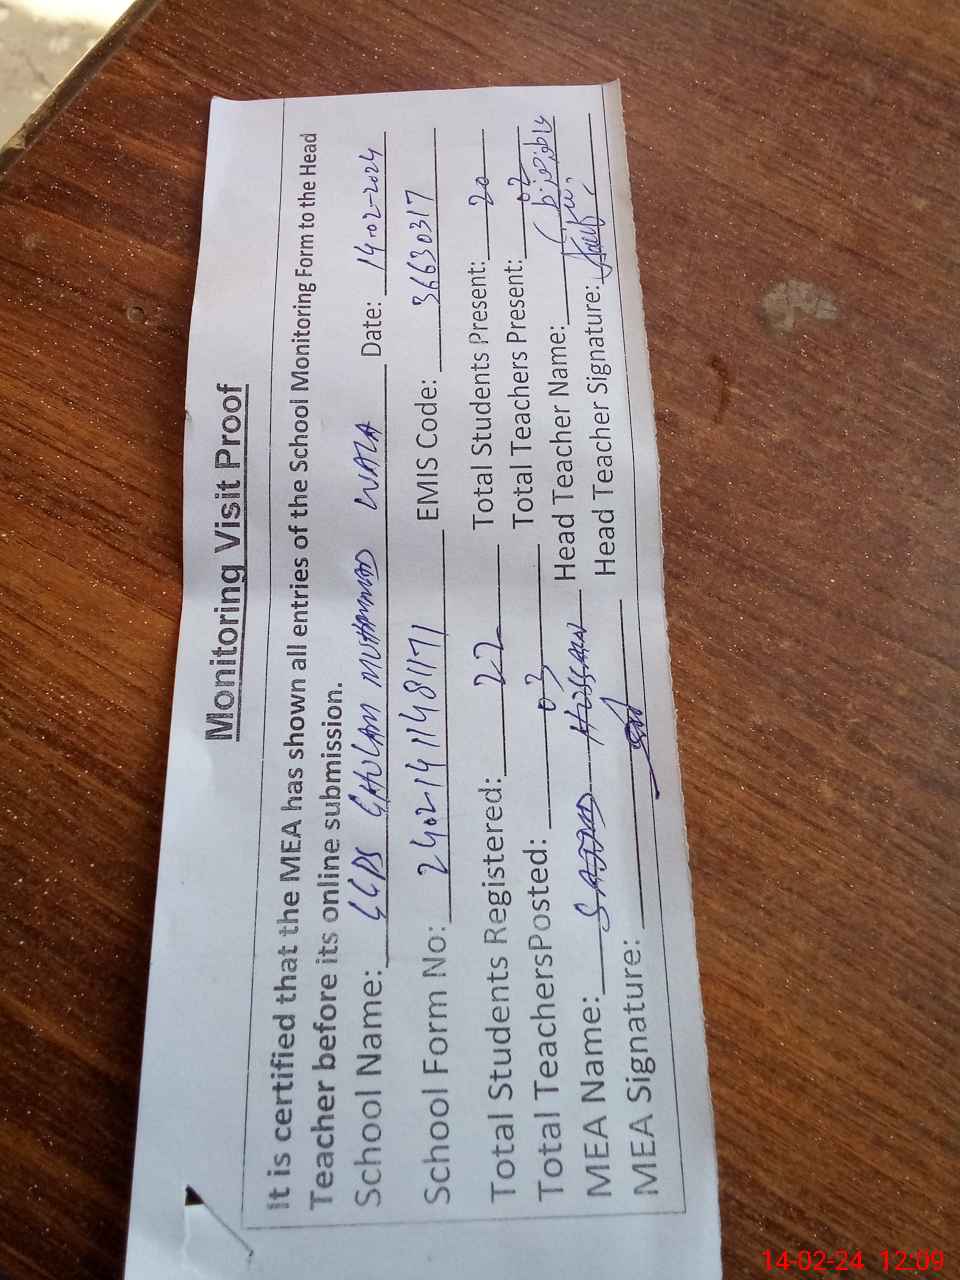 Monitoring Visit Proof
It is certified that the MEA has shown all entries of the School Monitoring Form to the Head
Teacher before its online submission.
School Name: GGPS GHULAM MUHAMMAD WALA Date: 14-02-2024
School Form No: 2402141148171 EMIS Code: 36630317
Total Students Registered: 22 Total Students Present: 20
Total TeachersPosted: 03 Total Teachers Present: 02
MEA Name: SAJJAD HUSSAIN Head Teacher Name:
MEA Signature: Head Teacher Signature:
14-02-24 12:09